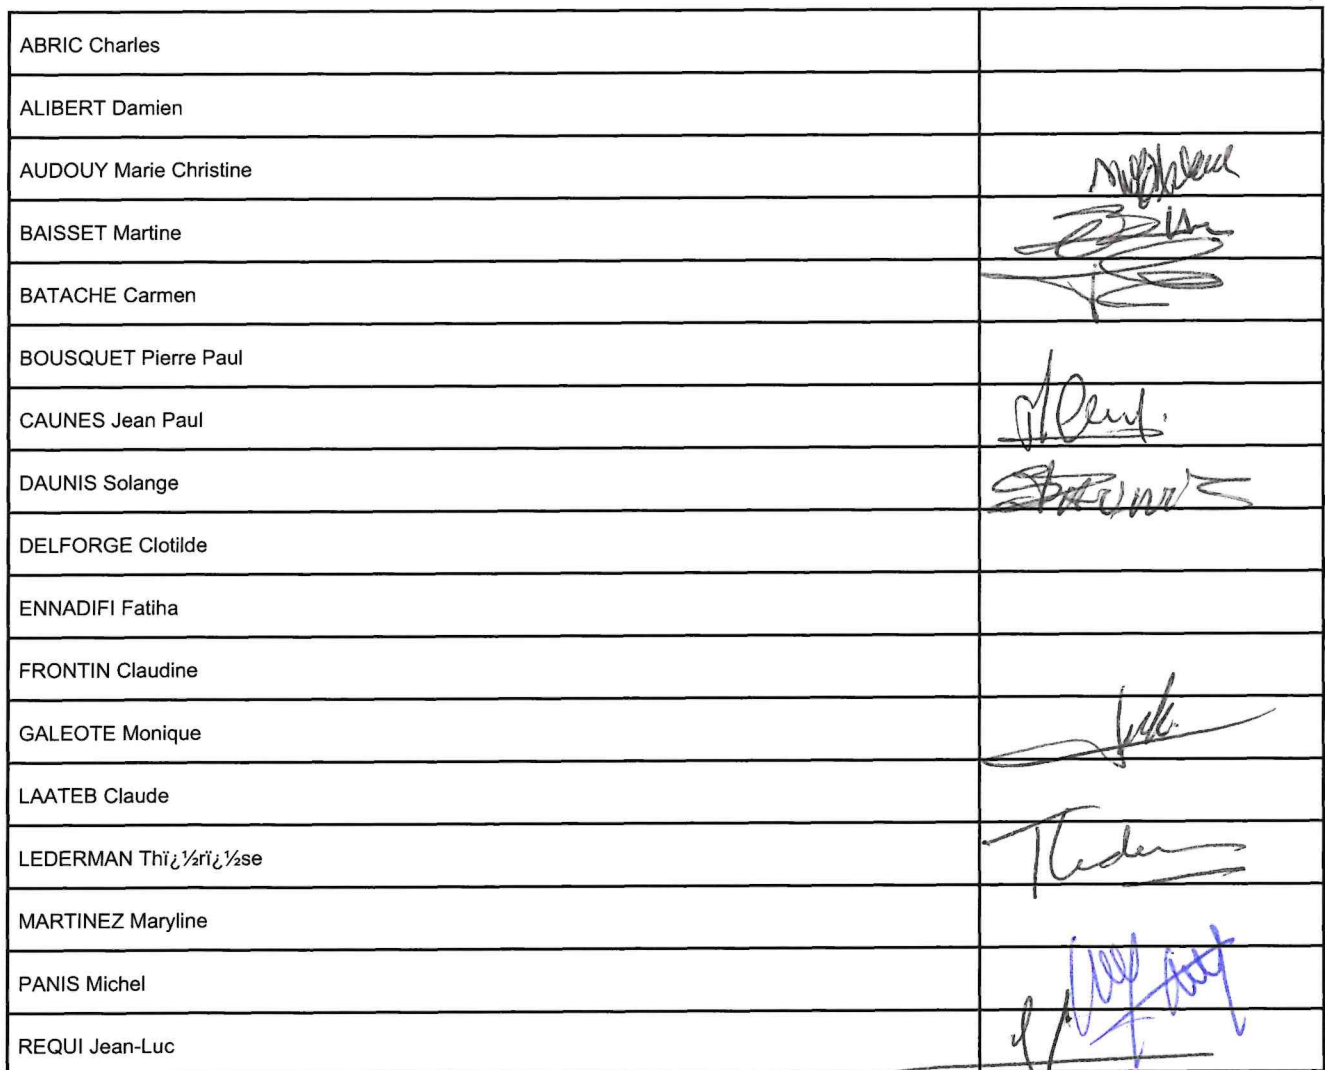 ABRIC Charles
ALIBERT Damien
AUDOUY Marie Christine
BAISSET Martine
BATACHE Carmen
BOUSQUET Pierre Paul
CAUNES Jean Paul
DAUNIS Solange
DELFORGE Clotilde
ENNADIFI Fatiha
FRONTIN Claudine
GALEOTE Monique
LAATEB Claude
LEDERMAN Thï¿½rï¿½se
MARTINEZ Maryline
PANIS Michel
REQUI Jean-Luc